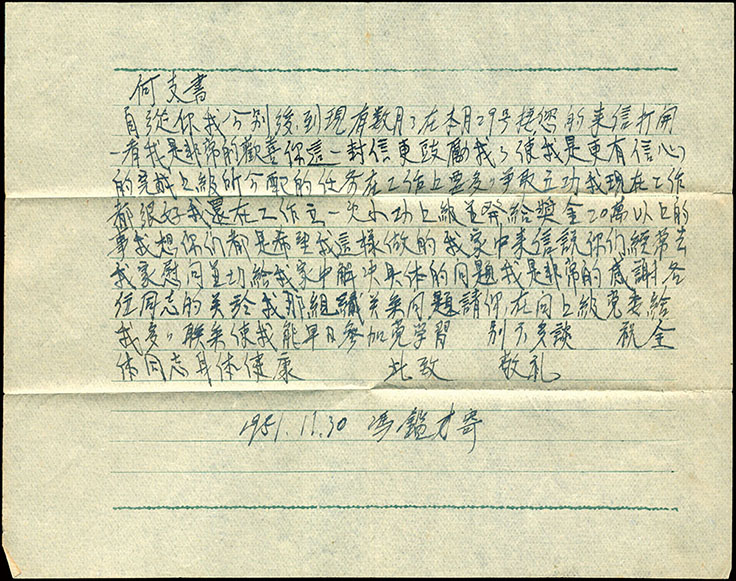 何支書
自從你我分别後到現有数月了在本月29号接您的来信打開
一看我是非常的歡喜你這一封信更鼓勵我了使我是更有信心
的完成上級所分配的任务在工作上要多々争取立功我現在工作
都很好我還在工作立一次小功上級並發給獎金20萬以上的
事我想你们都是希望我這樣做的我家中来信說你们經常去
我家慰问並切給我家中解决具体的问題我是非常的感謝各
位同志的关於我那組織关系问題請你在向上級党委給
我多々联系使我能早日参加党学習 别不多談 祝全
体同志身体健康 此致 敬礼
1951.11.30 馮鑑才寄